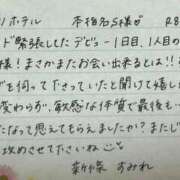 ホテル 本指名S様 R8
ド緊張したデビュー1日目、1人目の
様! まさかまたお会い出来るとは!!
を伺って下さっていたと聞けて嬉しい
変わらず、敏感な体質で最後も
になって思えてもらえましたか? またじ
攻めさせて下さいね
新妻 すみれ